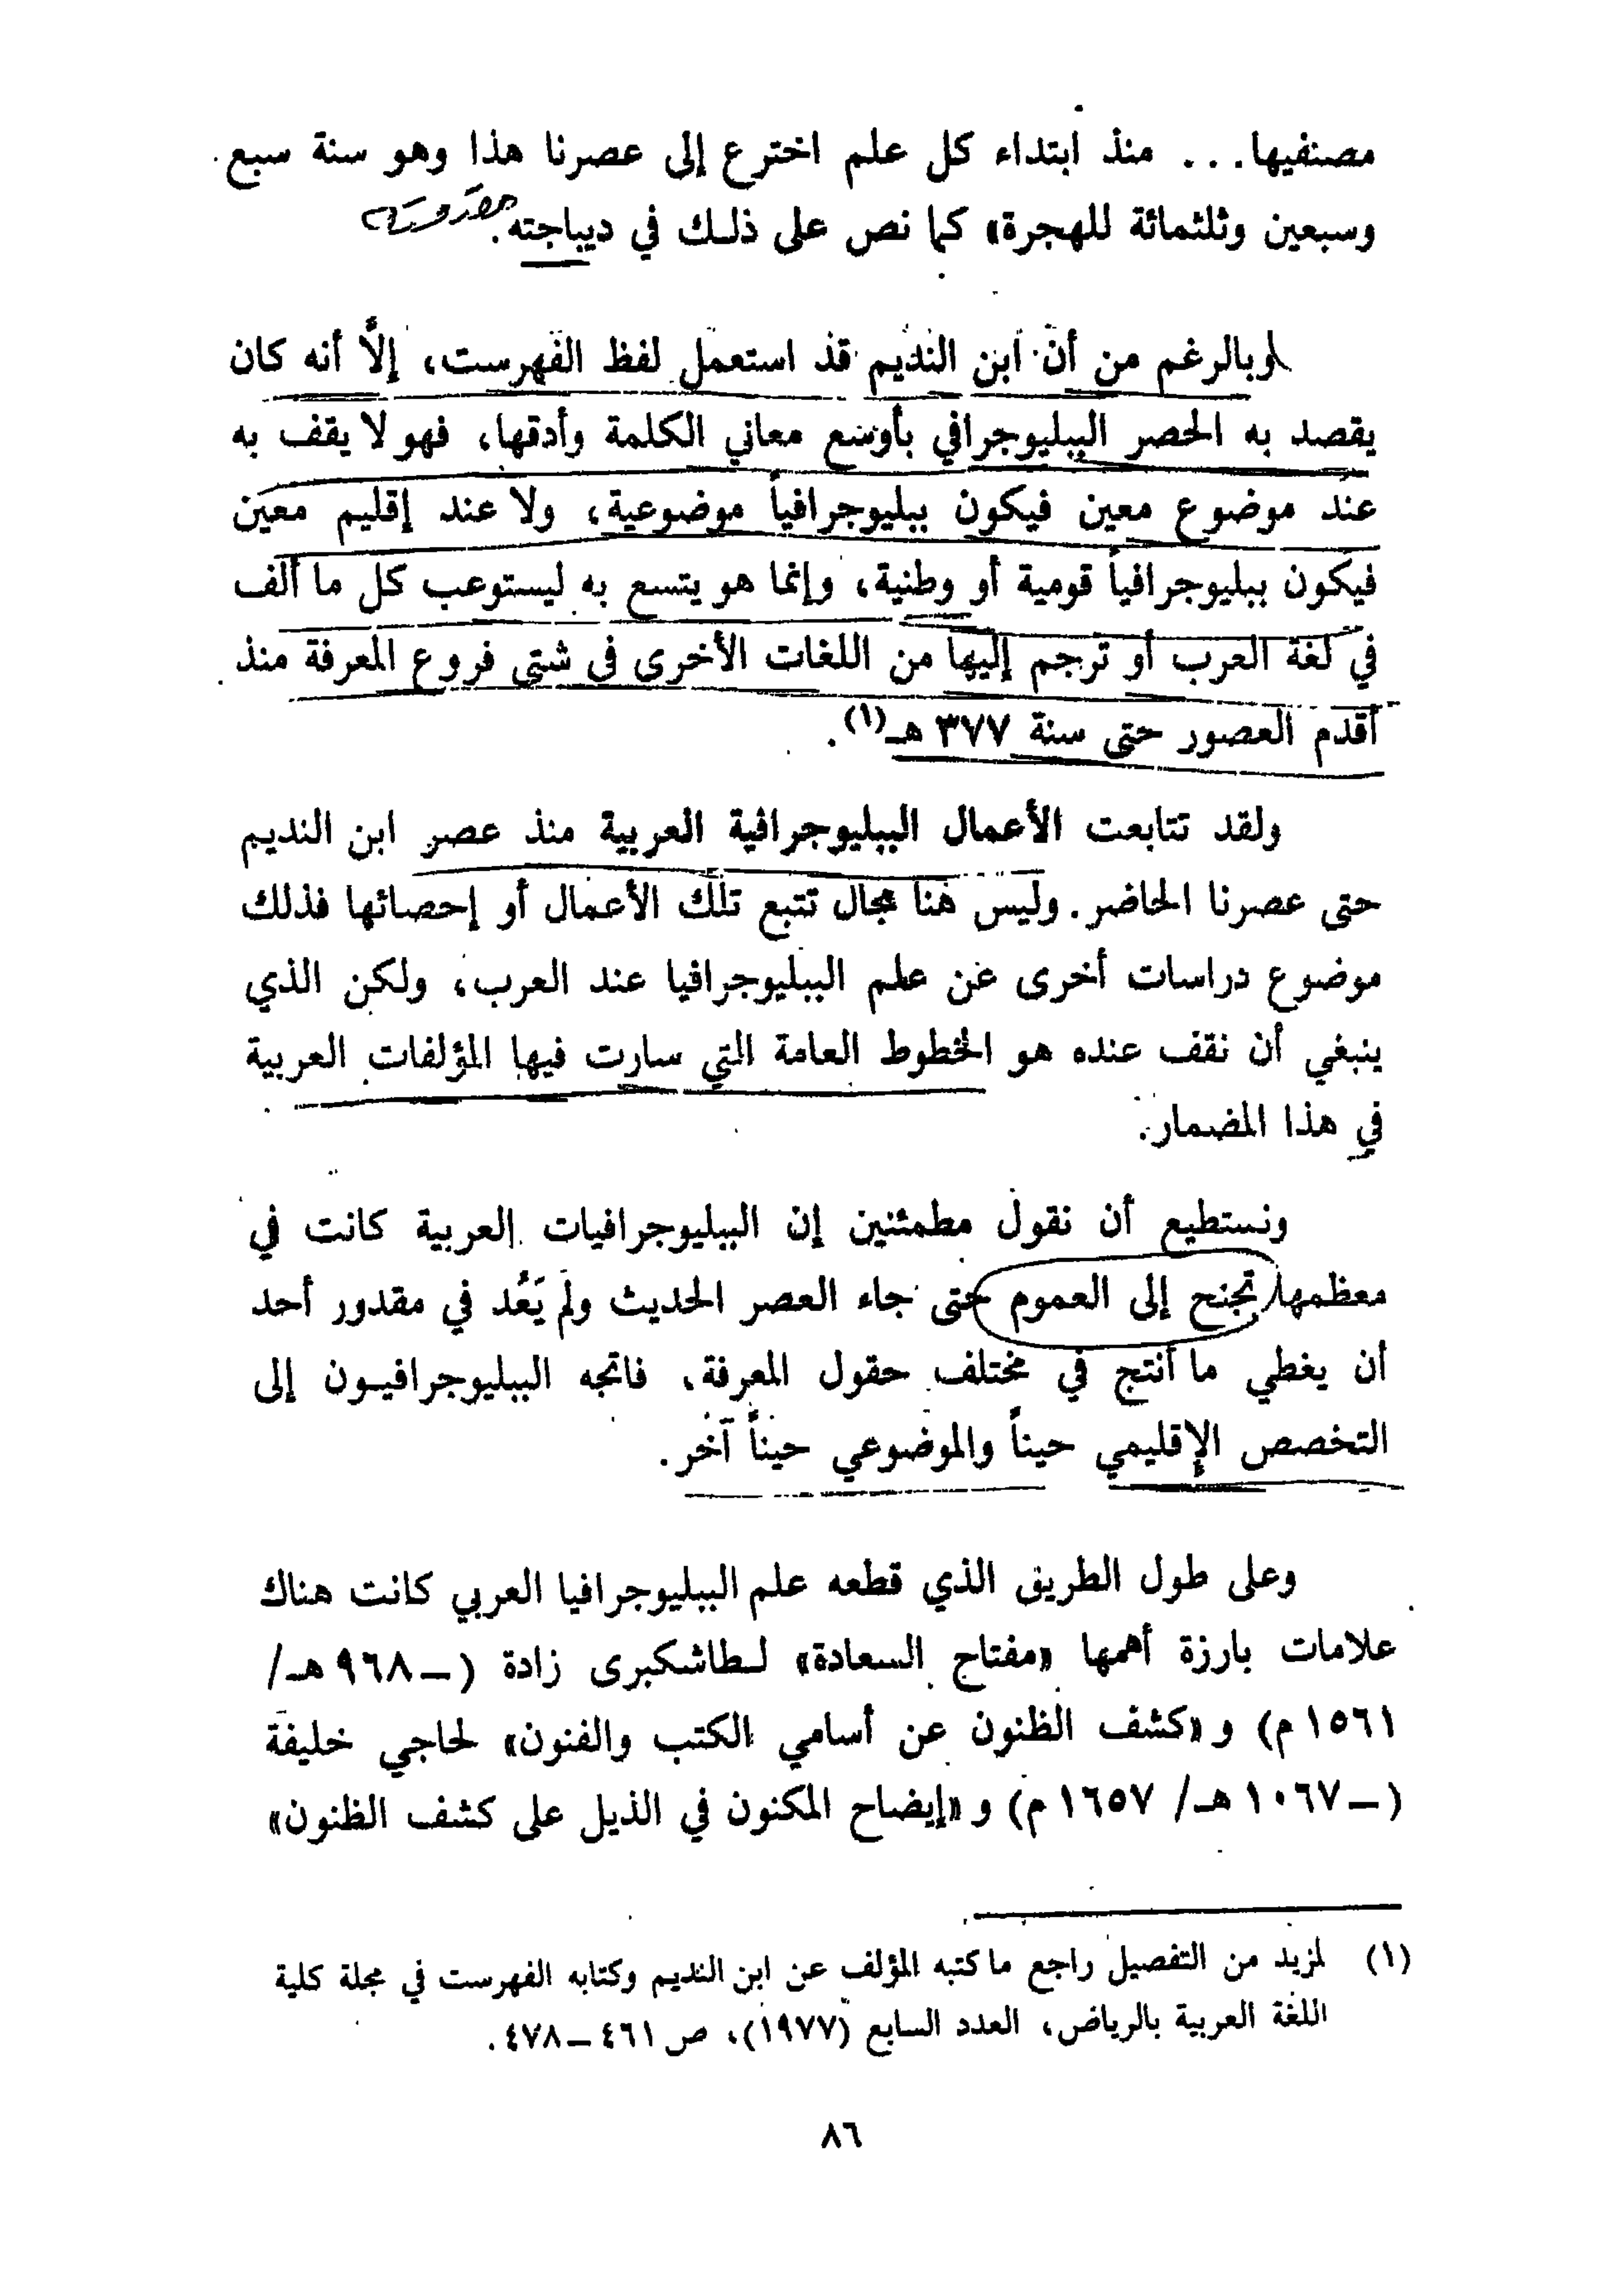 مصنفيها... منذ ابتداء كل علم اخترع إلى عصرنا هذا وهو سنة سبع
وسبعين وثلثمائة للهجرة» كما نص على ذلك في ديباجته.
وبالرغم من أن ابن النديم قد استعمل لفظ الفهرست، إلَّا أنه كان
يقصد به الحصر الببليوجرافي بأوسع معاني الكلمة وأدقها، فهو لا يقف به
عند موضوع معين فيكون ببليوجرافياً موضوعية، ولا عند إقليم معين
فيكون ببليوجرافياً قومية أو وطنية، وإنما هو يتسع به ليستوعب كل ما ألف
في لغة العرب أو ترجم إليها من اللغات الأخرى في شتى فروع المعرفة منذ
أقدم العصور حتى سنة ٣٧٧ هـ(١).
ولقد تتابعت الأعمال الببليوجرافية العربية منذ عصر ابن النديم
حتى عصرنا الحاضر. وليس هنا مجال تتبع تلك الأعمال أو إحصائها فذلك
موضوع دراسات أخرى عن علم الببليوجرافيا عند العرب، ولكن الذي
ينبغي أن نقف عنده هو الخطوط العامة التي سارت فيها المؤلفات العربية
في هذا المضمار.
ونستطيع أن نقول مطمئنين إن الببليوجرافيات العربية كانت في
معظمها تجنح إلى العموم حتى جاء العصر الحديث ولم يَعُد في مقدور أحد
أن يغطي ما أنتج في مختلف حقول المعرفة، فاتجه الببليوجرافيـون إلى
التخصص الإقليمي حيناً والموضوعي حيناً آخر.
وعلى طول الطريق الذي قطعه علم الببليوجرافيا العربي كانت هناك
علامات بارزة أهمها «مفتاح السعادة» لـطاشكبرى زادة (ـ ٩٦٨ هـ/
١٥٦١ م) و «كشف الظنون عن أسامي الكتب والفنون» لحاجي خليفة
(ـ ١٠٦٧ هـ/ ١٦٥٧ م) و «إيضاح المكنون في الذيل على كشف الظنون»
(١) لمزيد من التفصيل راجع ما كتبه المؤلف عن ابن النديم وكتابه الفهرست في مجلة كلية
اللغة العربية بالرياض، العدد السابع (١٩٧٧)، ص ٤٦١ ـ ٤٧٨.
٨٦